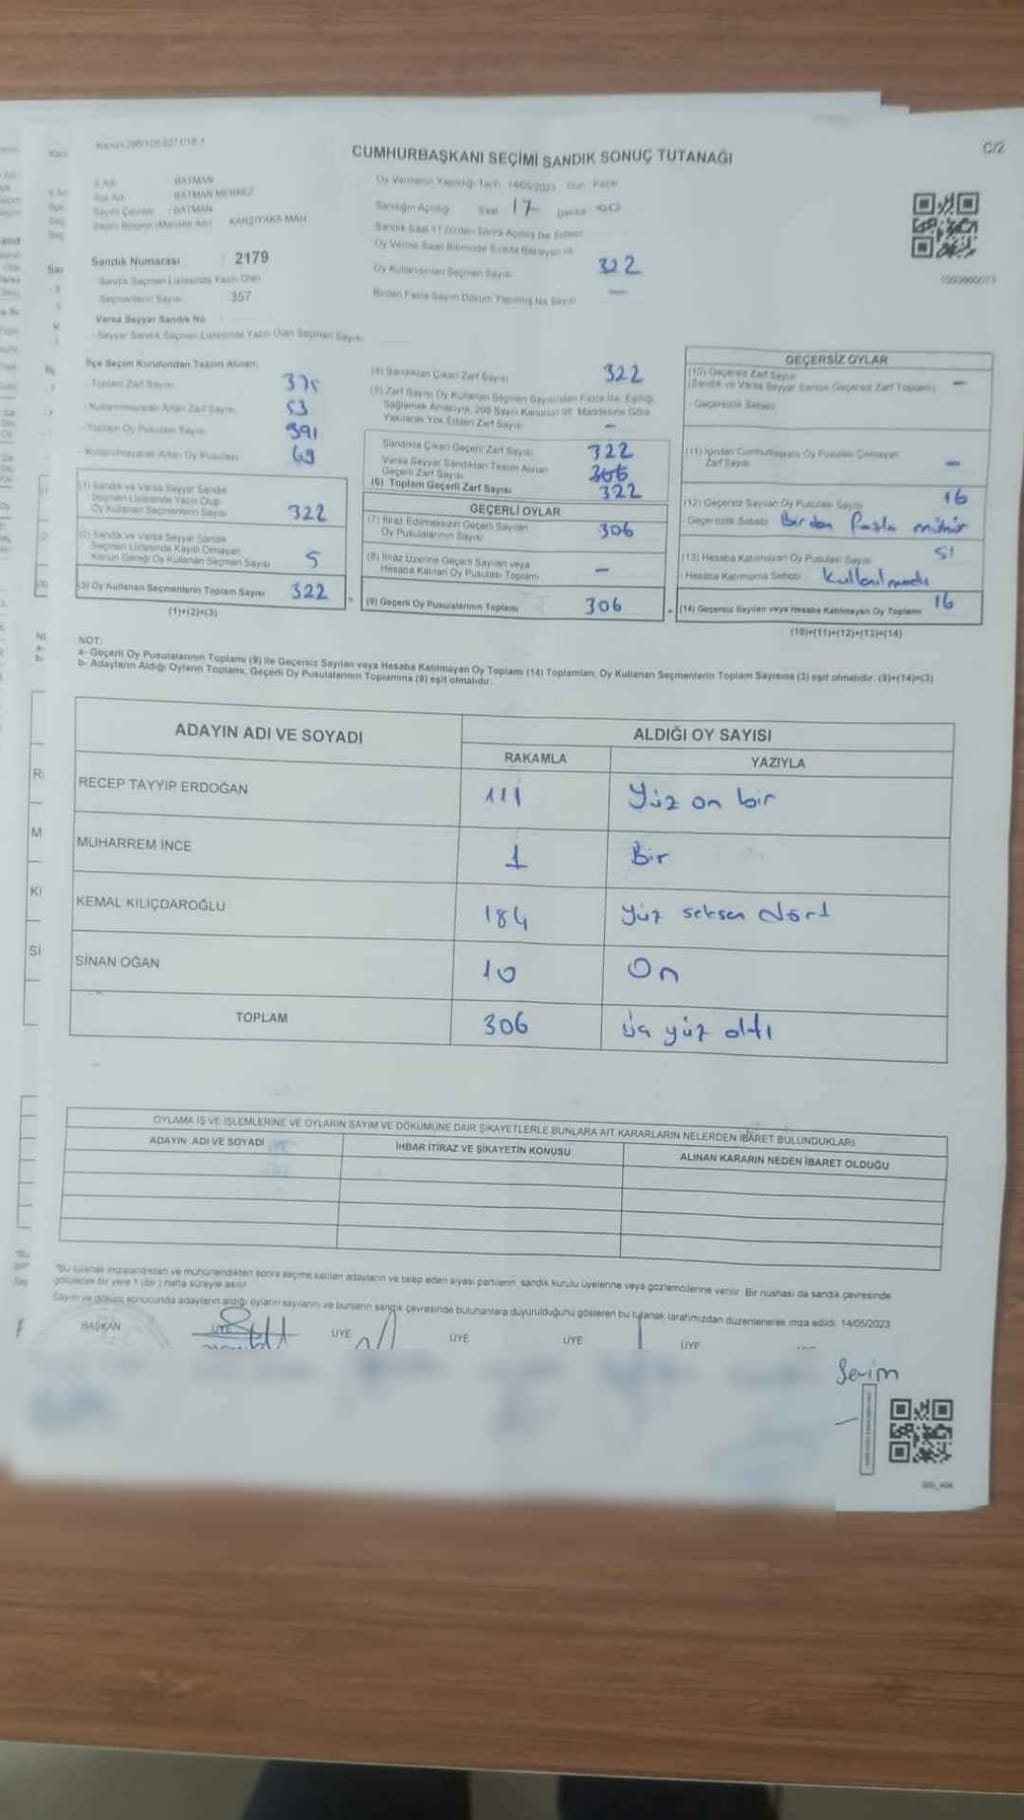 CUMHURBAŞKANI SEÇİMİ SANDIK SONUÇ TUTANAĞI
C/2
İl Adı BATMAN
İlçe Adı BATMAN MERKEZ
Seçim Çevresi : BATMAN
KARŞIYAKA MAH
Oy Vermenin Yapıldığı Tarih 14/05/2023 Gün Pazar
Sandığın Açıldığı Saat 17 Dakika 00
Sandık Numarası 2179
Sandık Seçmen Listesinde Yazılı Olan
Seçmenlerin Sayısı 357
Varsa Seyyar Sandık No
- Seyyar Sandık Seçmen Listesinde Yazılı Olan Seçmen Sayısı
Oy Kullandırılan Seçmen Sayısı 322
Birden Fazla Sayım Döküm Yapılmış İse Sayısı —
İlçe Seçim Kurulundan Teslim Alınan;
- Toplam Zarf Sayısı 375
- Kullanılmayarak Artan Zarf Sayısı 53
- Toplam Oy Pusulası Sayısı 391
- Kullanılmayarak Artan Oy Pusulası 69
(1) Sandık ve Varsa Seyyar Sandık
Seçmen Listesinde Yazılı Olup
Oy Kullanan Seçmenlerin Sayısı 322
(2) Sandık ve Varsa Seyyar Sandık
Seçmen Listesinde Kayıtlı Olmayan
Kanun Gereği Oy Kullanan Seçmen Sayısı 5
(3) Oy Kullanan Seçmenlerin Toplam Sayısı 322
(1)+(2)=(3)
(4) Sandıktan Çıkan Zarf Sayısı 322
(5) Zarf Sayısı Oy Kullanan Seçmen Sayısından Fazla İse, Eşitliği
Sağlamak Amacıyla, 298 Sayılı Kanunun 98. Maddesine Göre
Yakılarak Yok Edilen Zarf Sayısı —
Sandıkta Çıkan Geçerli Zarf Sayısı 322
Varsa Seyyar Sandıktan Teslim Alınan
Geçerli Zarf Sayısı 306
(6) Toplam Geçerli Zarf Sayısı 322
GEÇERLİ OYLAR
(7) İtiraz Edilmeksizin Geçerli Sayılan
Oy Pusulalarının Sayısı 306
(8) İtiraz Üzerine Geçerli Sayılan veya
Hesaba Katılan Oy Pusulası Toplamı —
(9) Geçerli Oy Pusulalarının Toplamı 306
GEÇERSİZ OYLAR
(10) Geçersiz Zarf Sayısı
(Sandık ve Varsa Seyyar Sandık Geçersiz Zarf Toplamı) —
- Geçersizlik Sebebi
(11) İçinden Cumhurbaşkanı Oy Pusulası Çıkmayan
Zarf Sayısı —
(12) Geçersiz Sayılan Oy Pusulası Sayısı 16
Geçersizlik Sebebi Birden fazla mühür
(13) Hesaba Katılmayan Oy Pusulası Sayısı 51
- Hesaba Katılmama Sebebi Kullanılmadı
(14) Geçersiz Sayılan veya Hesaba Katılmayan Oy Toplamı 16
(10)+(11)+(12)+(13)=(14)
NOT:
a- Geçerli Oy Pusulalarının Toplamı (9) ile Geçersiz Sayılan veya Hesaba Katılmayan Oy Toplamı (14) Toplamları, Oy Kullanan Seçmenlerin Toplam Sayısına (3) eşit olmalıdır. (9)+(14)=(3)
b- Adayların Aldığı Oyların Toplamı, Geçerli Oy Pusulalarının Toplamına (9) eşit olmalıdır.
ADAYIN ADI VE SOYADI ALDIĞI OY SAYISI
RAKAMLA YAZIYLA
RECEP TAYYİP ERDOĞAN 111 Yüz on bir
MUHARREM İNCE 1 Bir
KEMAL KILIÇDAROĞLU 184 Yüz seksen dört
SİNAN OĞAN 10 On
TOPLAM 306 üç yüz altı
OYLAMA İŞ VE İŞLEMLERİNE VE OYLARIN SAYIM VE DÖKÜMÜNE DAİR ŞİKAYETLERLE BUNLARA AİT KARARLARIN NELERDEN İBARET BULUNDUKLARI
ADAYIN ADI VE SOYADI İHBAR İTİRAZ VE ŞİKAYETİN KONUSU ALINAN KARARIN NEDEN İBARET OLDUĞU
*Bu tutanak imzalandıktan ve mühürlendikten sonra seçime katılan adayların ve talep eden siyasi partilerin, sandık kurulu üyelerine veya gözlemcilerine verilir. Bir nüshası da sandık çevresinde
görülecek bir yere 1 (bir) hafta süreyle asılır.
Sayım ve döküm sonucunda adayların aldığı oyların sayılarını ve bunların sandık çevresinde bulunanlara duyurulduğunu gösteren bu tutanak tarafımızdan düzenlenerek imza edildi. 14/05/2023
BAŞKAN ÜYE ÜYE ÜYE ÜYE ÜYE